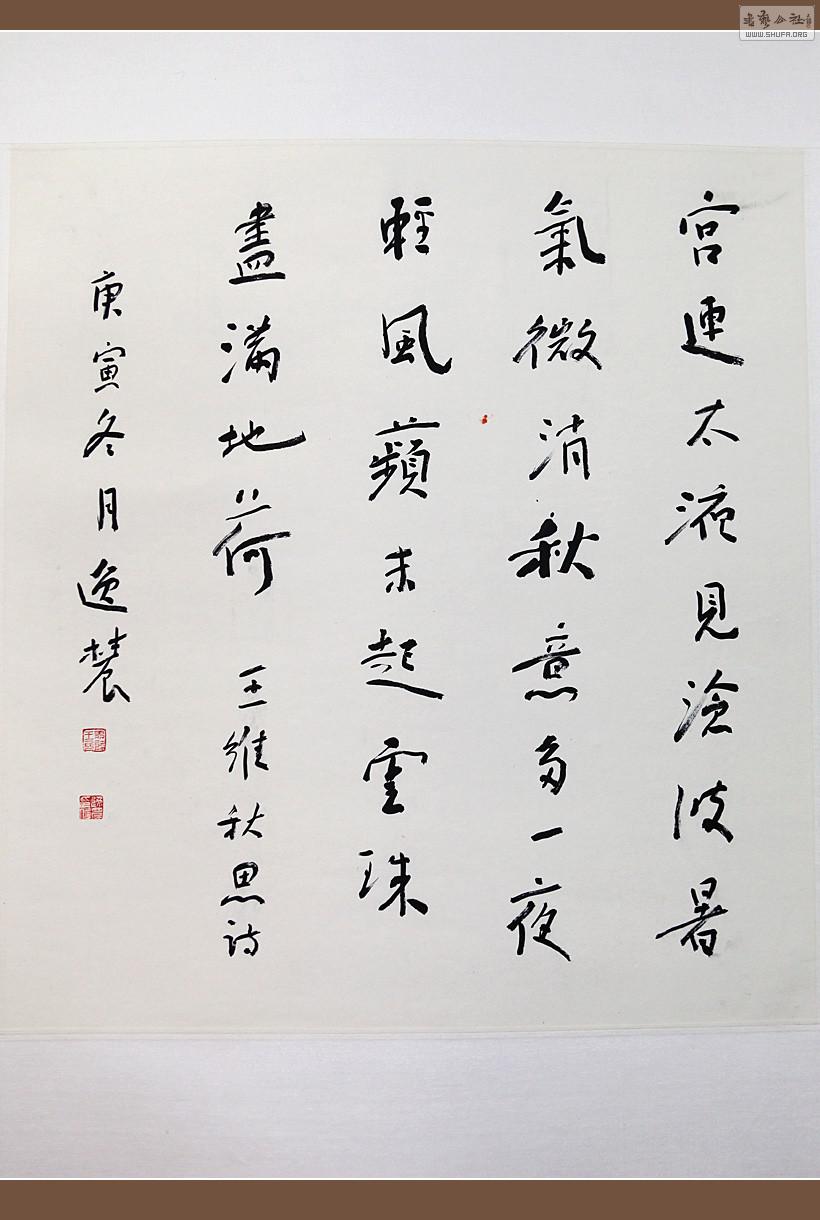 宮連太液見滄波暑
氣微消秋意多一夜
輕風蘋末起露珠
盡滿地荷 王維秋思詩
庚寅冬月逸
WWW.SHUFA.ORG